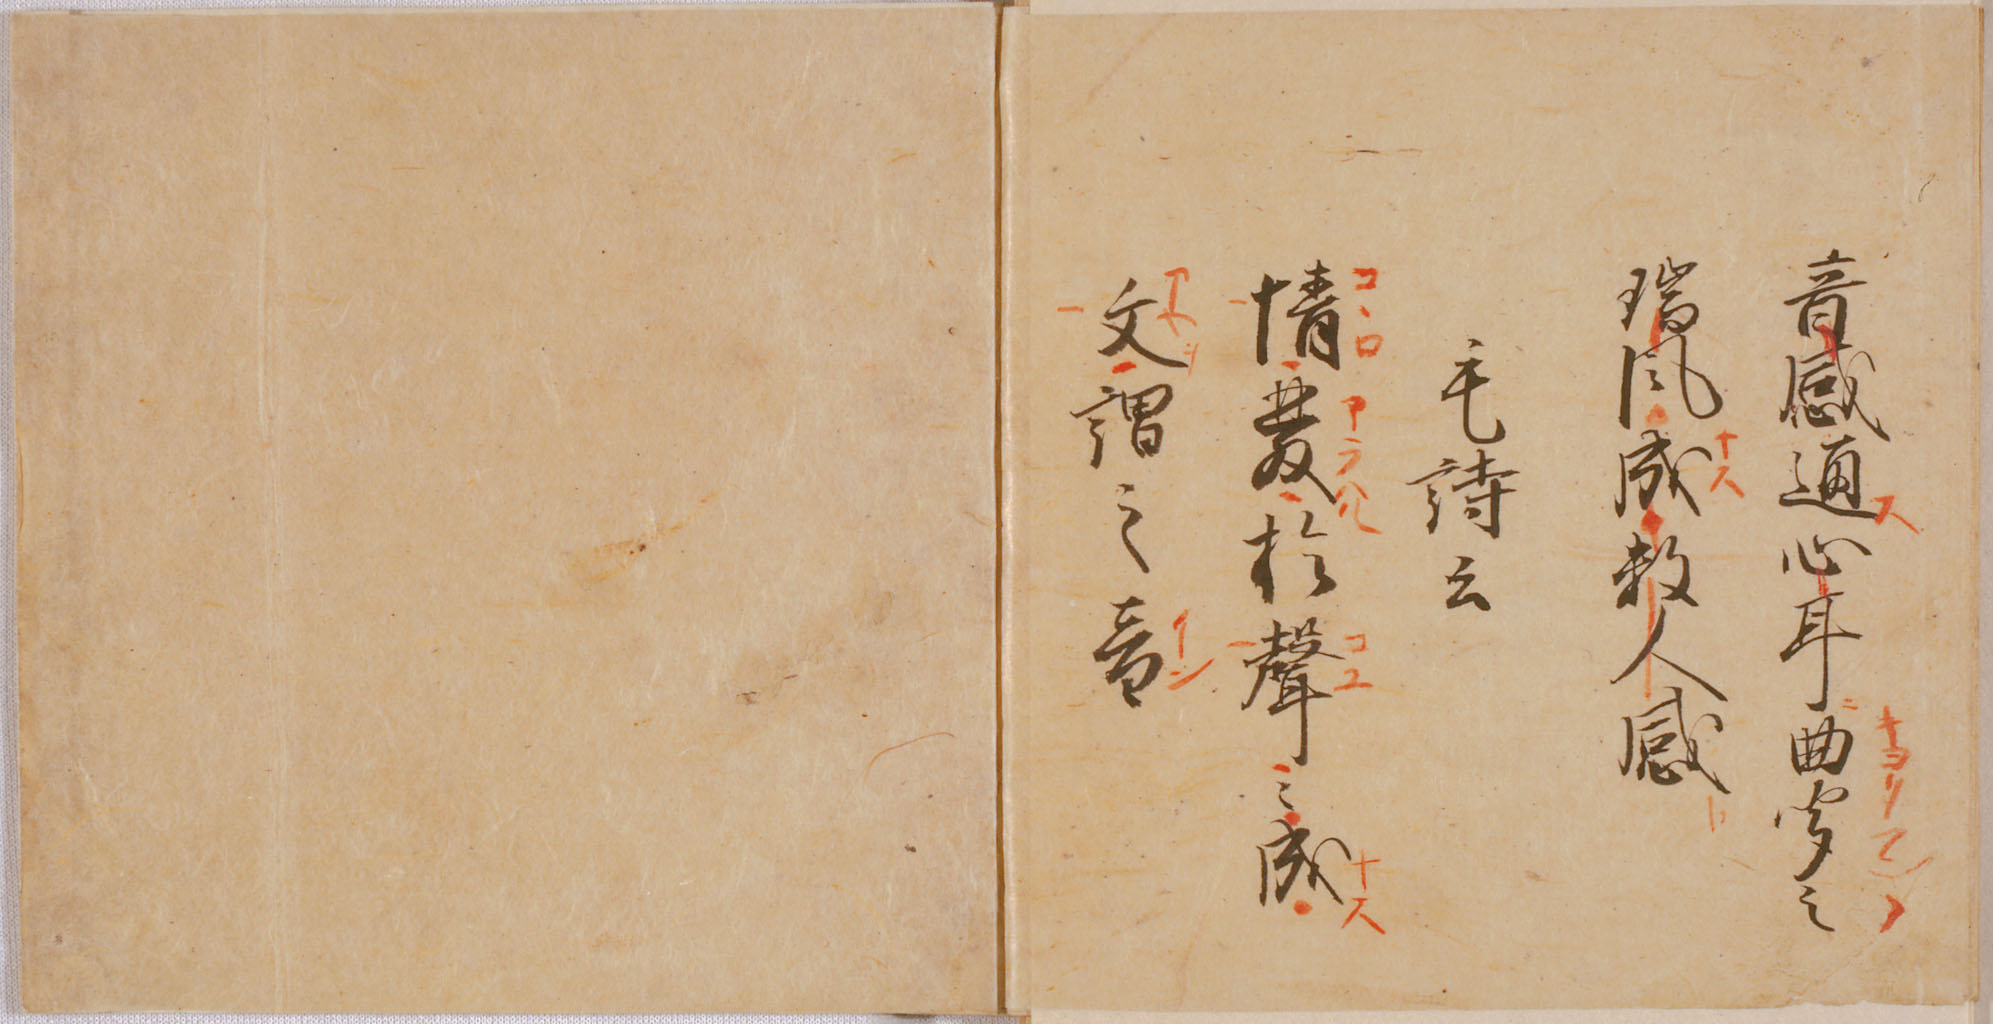 音感通心耳曲穿之
瑞風成教人感
毛詩云
情發於聲〻成
文謂之音